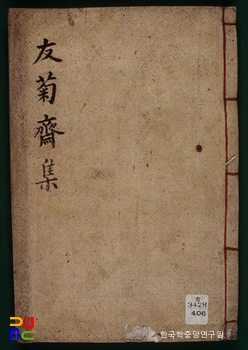 友菊齋集
古
3428
406
한국학중앙연구원